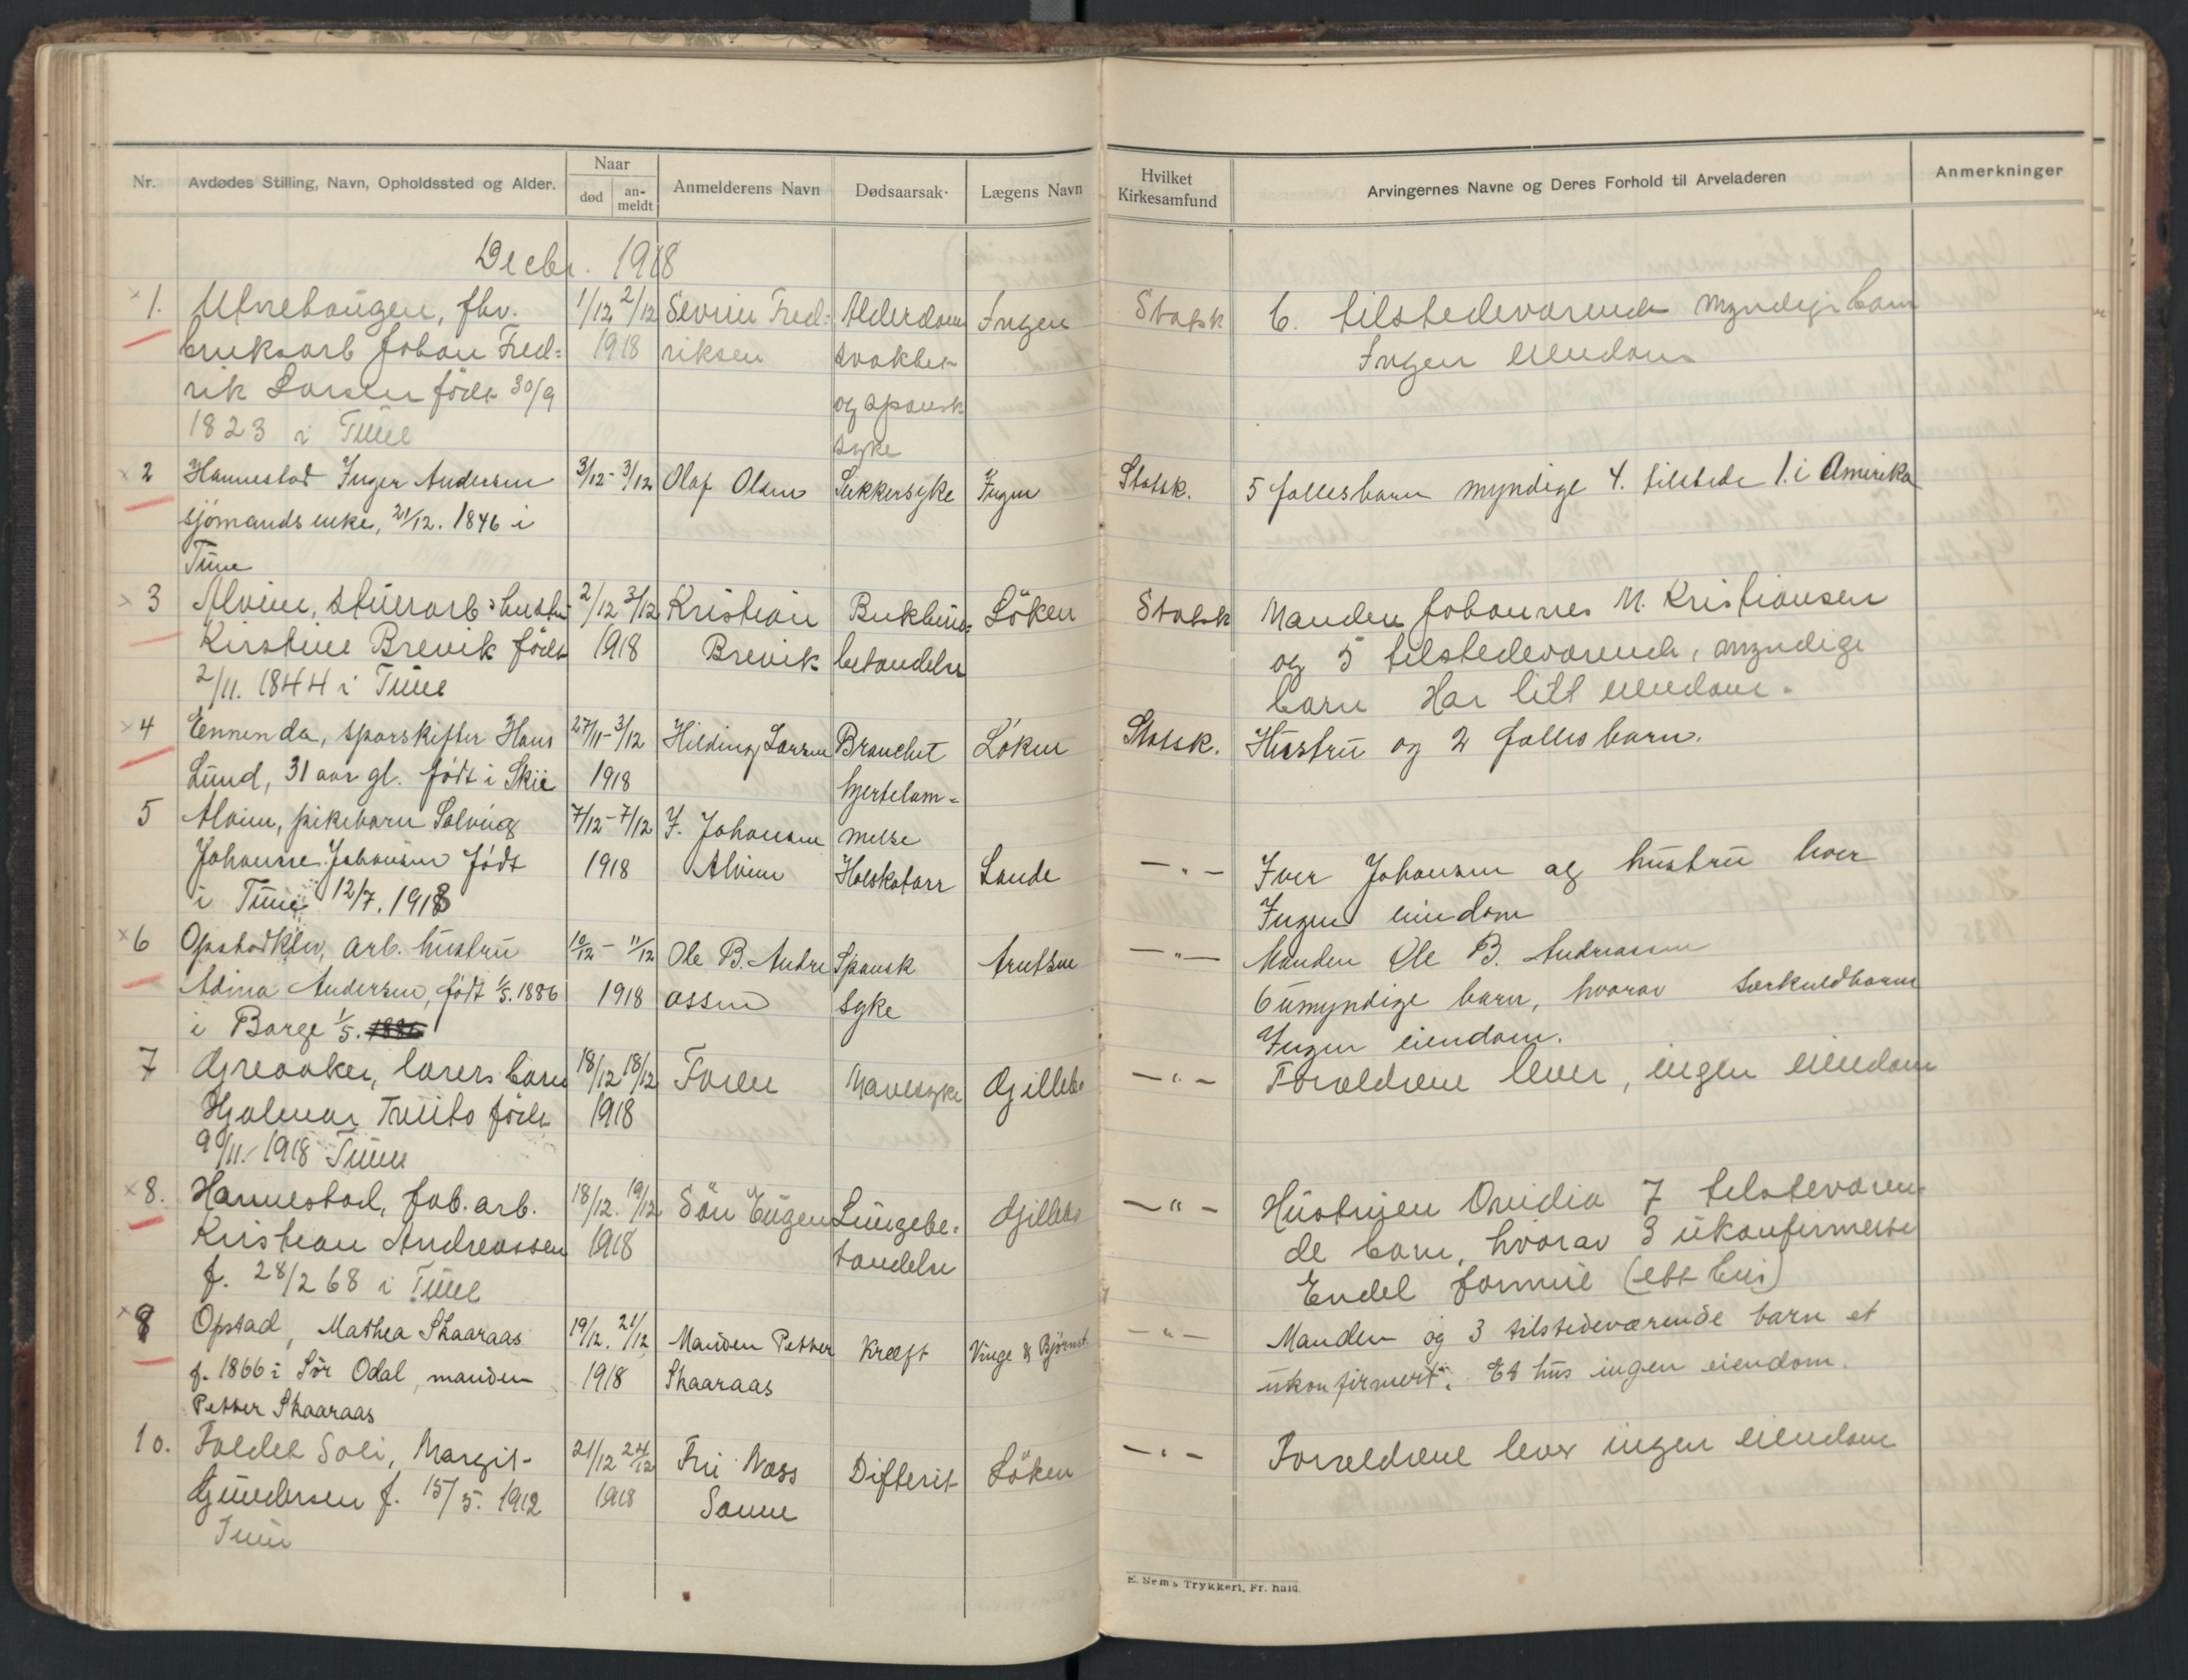 Nr.
Avdødes Stilling, Navn, Opholdssted og Alder.
Naar
død
an-
meldt
Anmelderens Navn
Dødsaarsak.
Lægens Navn
Hvilket
Kirkesamfund
Arvingernes Navne og Deres Forhold til Arveladeren
Anmerkninger
Decbr. 1918
1. fhv. 1/12 2/12 Sevrin Fred= Alderdoms Ingen Statsk 6. tilstedeværende myndige barn
bruksarb Johan Fred= 1918 riksen svakhet Ingen eiendom
rik Larsen født 30/9 og spansk
1823 i Tune syke
2 Hannestad Inger Andersen 3/12 - 3/12 Olaf Olsen Sukkersyke Ingen Statsk. 5 fællesbarn myndige 4. tilstede 1. i Amerika
sjømands enke, 21/12. 1846 i
Tune
3 Alvim, stuerarb. hustru 2/12 3/12 Kristian Bukhinde= Löken Statsk Manden Johannes M. Kristiansen
Kirstine Brevik født 1918 Brevik betændelse og 5 tilstedeværende, myndige
2/11. 1844 i Tune barn Har litt eiendom.
4 Enninda, sporskifter Hans 27/11 - 3/12 Hilding Larsen Løken Statsk. Hustru og 2 fælles barn.
Lund, 31 aar gl. født i Skie 1918 hjertelam=
5 Alvim, pikebarn Solveig 7/12 - 7/12 I. Johansen melse
Johanne Johansen født 1918 Alvim Halskatarr Lande — " — Iver Johansen og hustru lever
i Tune 12/7. 1918 Ingen eiendom
6 Opstadklev, arb. hustru 10/12 - 11/12 Ole B. Andre Spansk Arntsen — " — Manden Ole B. Andreassen
Adina Andersen, født 1/5. 1886 1918 assen syke 6 umyndige barn, hvorav særkuldbarn
i Borge 1/5. 1886 Ingen eiendom.
7 Greaaker, lærers barn 18/12 18/12 Faren Mavesyke Gjillebo — " — Forældrene lever, ingen eiendom
Hjalmar født 1918
9/11. 1918 Tune
8. Hannestad, fab. arb. 18/12. 19/12 Sön Eugen Lungebe= Gjillebo — " — Hustruen Ovidia 7 tilsteværen
Kristian Andreassen 1918 tændelse de barn, hvorav 3 ukonfirmerte
f. 28/2 68 i Tune Endel formue (ett hus)
9 Opstad, Mathea Skaaraas 19/12. 21/12 Manden Petter Kræft Vinge & Bjørnst. — " — Manden og 3 tilstedeværende barn et
f. 1866 i Sör Odal, manden 1918 Skaaraas ukonfirmert. Et hus ingen eiendom.
Petter Skaaraas
10. Foldet Soli, Margit 21/12 24/12 Fru Næss Difterit Löken — " — Forældrene lever ingen eiendom
Gundersen f. 15/5. 1912 1918 Sanne
Tune
E. Sem's Trykkeri, Fr. hald.